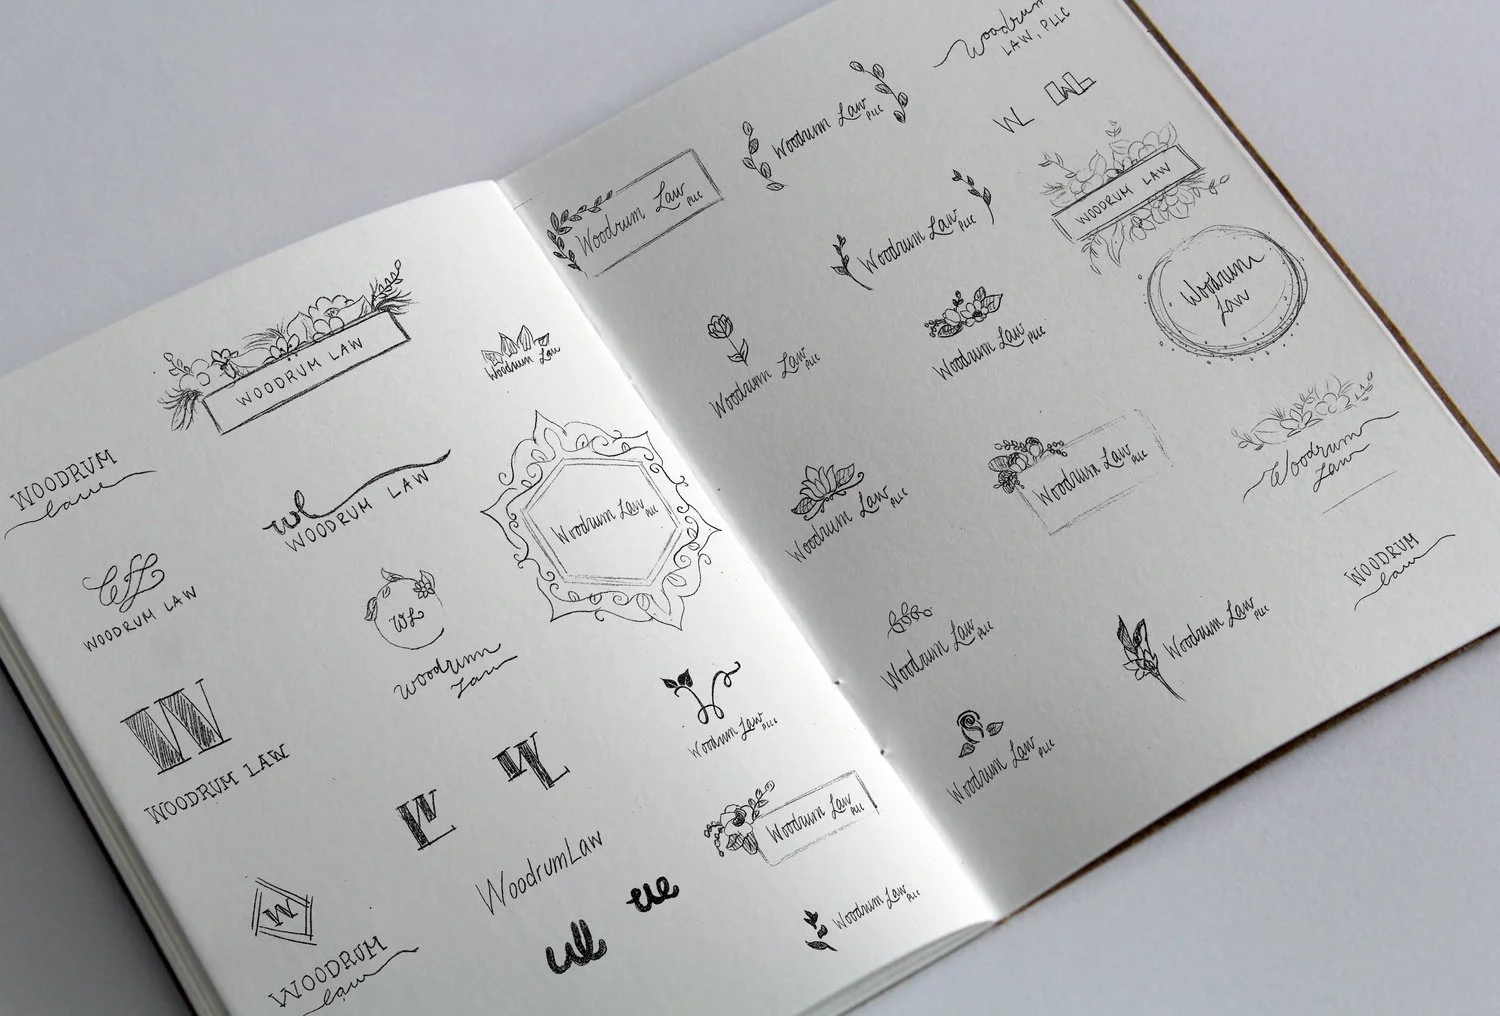 WOODRUM LAW
Woodrum Law
WOODRUM
law
wl
WOODRUM LAW
Woodrum Law PLLC
WOODRUM LAW
WL
Woodrum
Law
W
WOODRUM LAW
Woodrum Law PLLC
WL
WL
WoodrumLaw
Woodrum Law PLLC
W
WOODRUM
law
wl
Woodrum Law PLLC
Woodrum
LAW, PLLC
Woodrum Law PLLC
WL
WL
Woodrum Law PLLC
WOODRUM LAW
Woodrum Law PLLC
Woodrum
Law
Woodrum Law PLLC
Woodrum Law PLLC
Woodrum
Law
Woodrum Law PLLC
Woodrum Law PLLC
WOODRUM
law
Woodrum Law PLLC
Woodrum Law PLLC
Woodrum Law PLLC